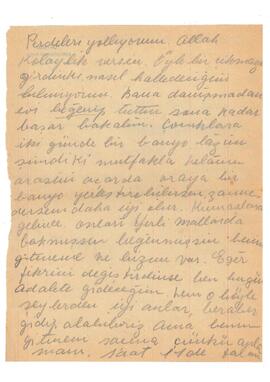 Perdeleri yolluyorum. Allah
kolaylık versin. Öyle bir
girdin ki, nasıl halledeceğini
bilmiyorum. Bana danışmadan
evi beğenip tuttun sona kadar
başar bakalım. Çocuklara
iki günde bir banyo lâzım
şimdiki mutfakla helânın
arasını açarda oraya bir
banyo yerleştirebilirsen
daha iyi olur.
gelince, onları Yerli Mallarda
bakmışsın beğenmişsin benim
gitmeme ne lüzum var. Eğer
fikrini değiştirdinse ben bugün
Adalete gideceğim, hem o böyle
şeylerden iyi anlar, beraber
gidip alabiliriz ama benim
gitmem saat 11 de